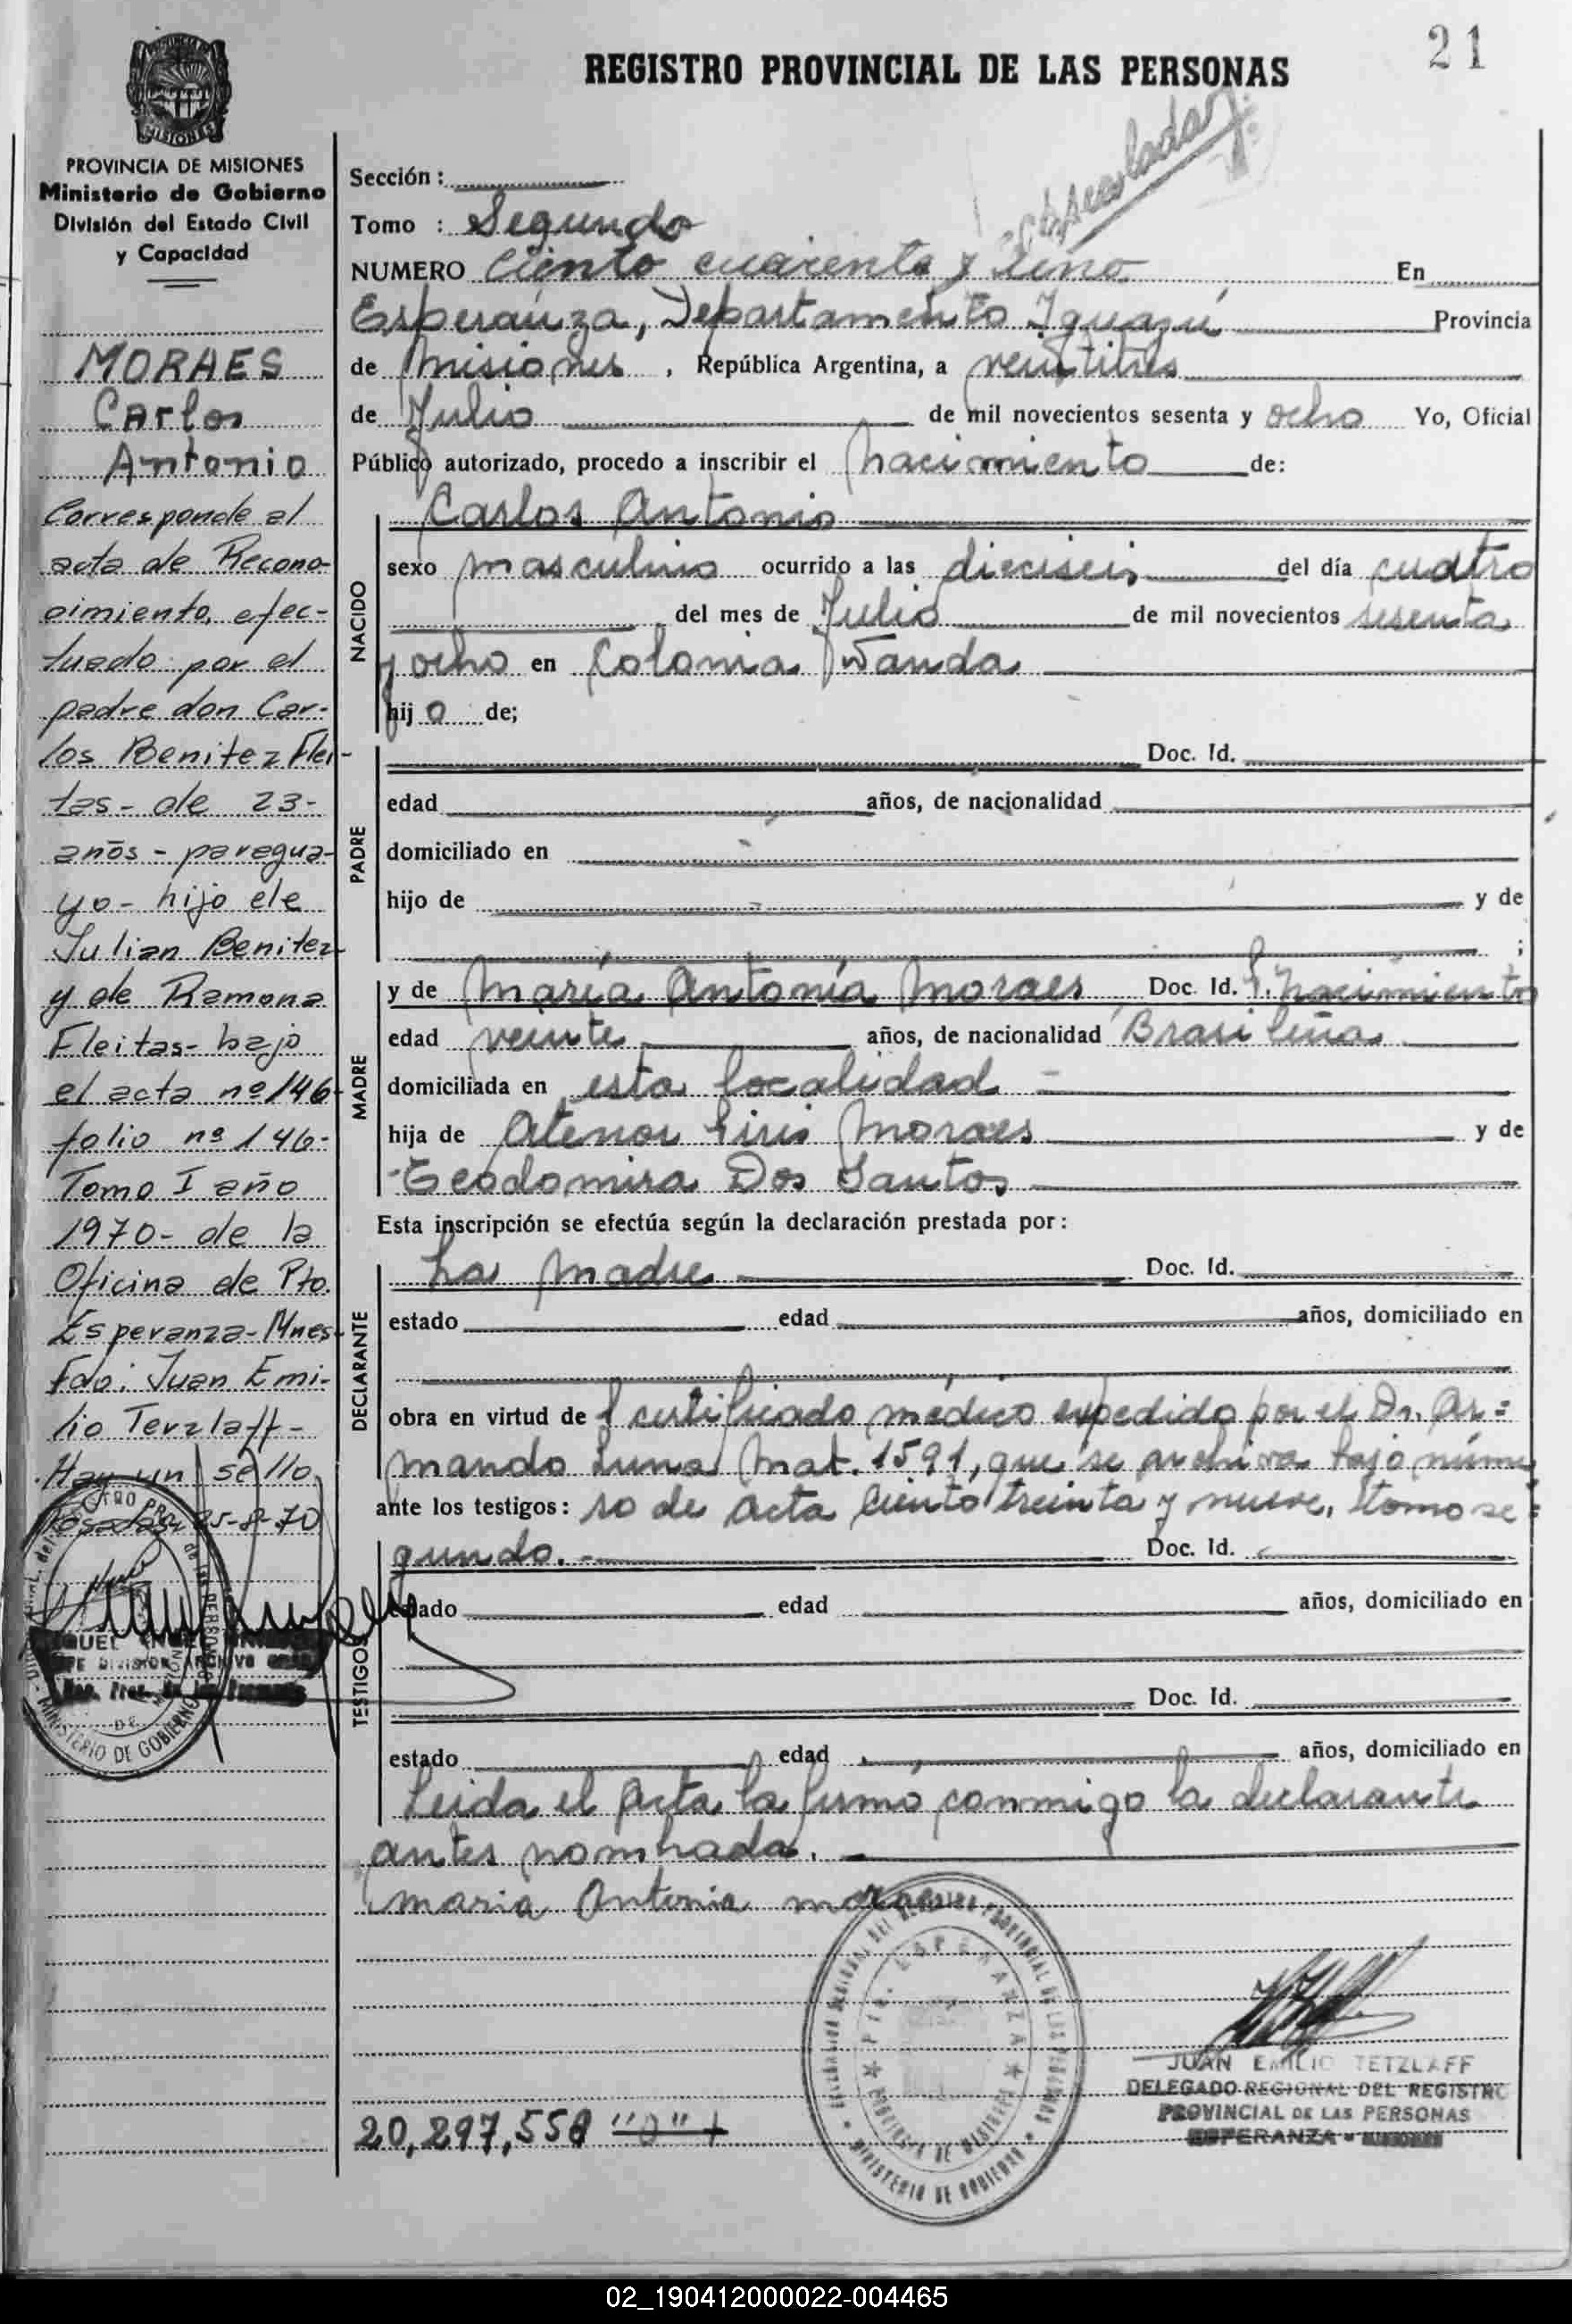 21
REGISTRO PROVINCIAL DE LAS PERSONAS
MISIONES
PROVINCIA DE MISIONES
Ministerio de Gobierno
División del Estado Civil
y Capacidad
MORAES
Carlos
Antonio
Corresponde al
acta de Recono-
cimiento, efec-
tuado por el
padre don Car-
los Benitez Flei-
tas - de 23-
años - paragua-
yo - hijo de
Julian Benitez
y de Ramona
Fleitas - bajo
el acta nº 146
folio nº 146-
Tomo I año
1970 - de la
Oficina de Pto.
Esperanza - Mnes-
Fdo: Juan Emi-
lio Terzlaff -
Hay un sello
Posadas, 25-8-70
MINISTERIO DE GOBIERNO
Sección :
Tomo : Segundo
NUMERO Ciento cuarenta y Uno En
Esperanza, Departamento Iguazú Provincia
de Misiones , República Argentina, a veintitrés
de Julio de mil novecientos sesenta y ocho Yo, Oficial
Público autorizado, procedo a inscribir el nacimiento de:
NACIDO
Carlos Antonio
sexo masculino ocurrido a las dieciseis del día cuatro
del mes de Julio de mil novecientos sesenta
y ocho en Colonia Wanda
hij o de;
PADRE
Doc. Id.
edad años, de nacionalidad
domiciliado en
hijo de y de
;
MADRE
y de María Antonia Moraes Doc. Id. P. nacimiento
edad veinte años, de nacionalidad Brasileña
domiciliada en esta localidad -
hija de Atenor Moraes y de
Teodomira Dos Santos
Esta inscripción se efectúa según la declaración prestada por:
DECLARANTE
La madre Doc. Id.
estado edad años, domiciliado en
obra en virtud de certificado médico expedido por el Dr. Ar=
mando Luna Mat. 1591, que se archiva bajo núme
ante los testigos: ro de acta ciento treinta y nueve, tomo se=
TESTIGOS
gundo. - Doc. Id.
estado edad años, domiciliado en
Doc. Id.
estado edad años, domiciliado en
Leida el Acta la firmó conmigo la declarante
antes nombrada. -
maria Antonia moraes
PTO. ESPERANZA
MINISTERIO DE GOBIERNO
JUAN EMILIO TETZLAFF
DELEGADO REGIONAL DEL REGISTRO
PROVINCIAL DE LAS PERSONAS
ESPERANZA - MISIONES
20,297,558 "O" +
02_190412000022-004465